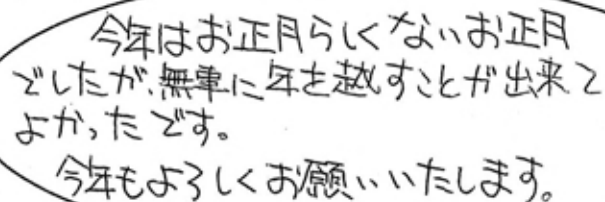 今年はお正月らしくないお正月
でしたが、無事に年を越すことが出来て
よかったです。
今年もよろしくお願いいたします。